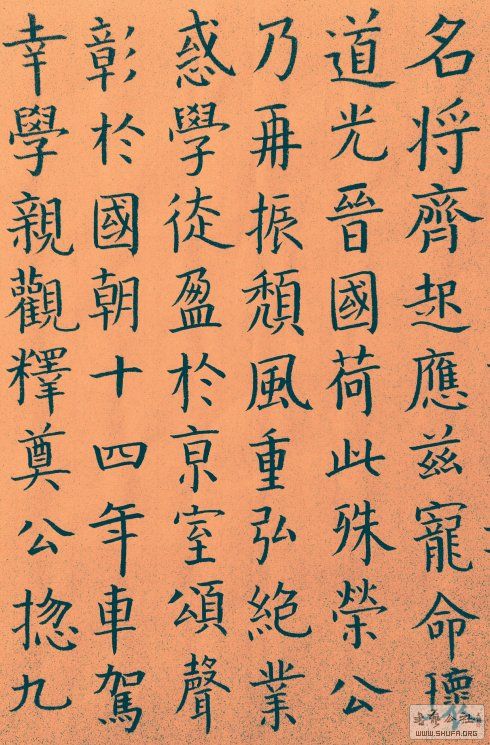 名将齊起應兹寵命
道光晉國荷此殊榮公
乃再振頹風重弘絶業
惑學徒盈於京室頌聲
彰於國朝十四年車駕
幸學親觀釋奠公揔九
WWW.SHUFA.ORG